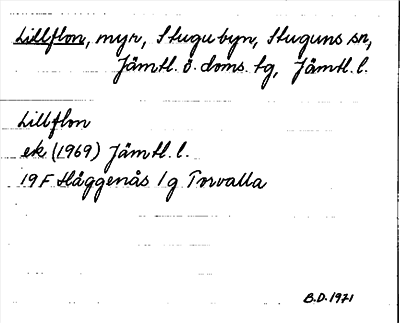 Lillflon, myr, Stugu byn, Stuguns sn,
Jämtl. ö. doms. tg, Jämtl. l.
Lillflon
ek (1969) Jämtl. l.
19 F Håggenås 1 g Torvalla
B.D. 1971